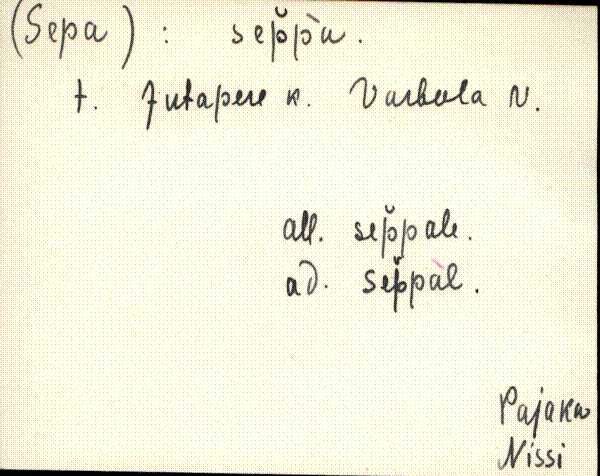 (Sepa) : sep̆pà.
t. Jutapere k. Varbola v.
all. sep̆pale.
ad. sep̆pàl.
Pajaka
Nissi